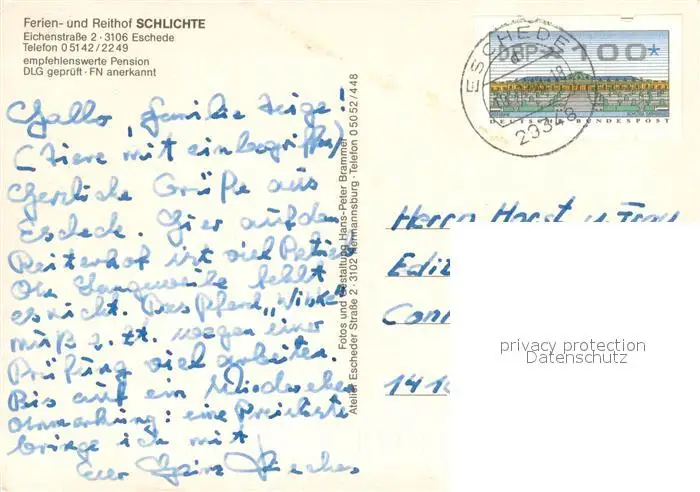 Ferien- und Reithof SCHLICHTE
Eichenstraße 2 · 3106 Eschede
Telefon 0 51 42 / 22 49
empfehlenswerte Pension
DLG geprüft · FN anerkannt
Hallo, Familie !
(Tiere mit einbegriffen)
Herzliche Grüße aus
Eschede. Hier auf dem
Reiterhof ist viel Betrieb
An Langeweile fehlt
es nicht. Das Pferd
muß z. Zt. wegen einer
Prüfung viel arbeiten.
Bis auf ein Wiedersehen
Anmerkung: eine Preisliste
bringe ich mit
Euer Heinz
Fotos und Gestaltung Hans-Peter Brammer
Atelier Escheder Straße 2 · 3102 Hermannsburg · Telefon 0 50 52 / 448
ESCHEDE
23348
DBP 100*
DEUTSCHE BUNDESPOST
Herrn Horst u. Frau
Edit
Con
141
privacy protection
Datenschutz